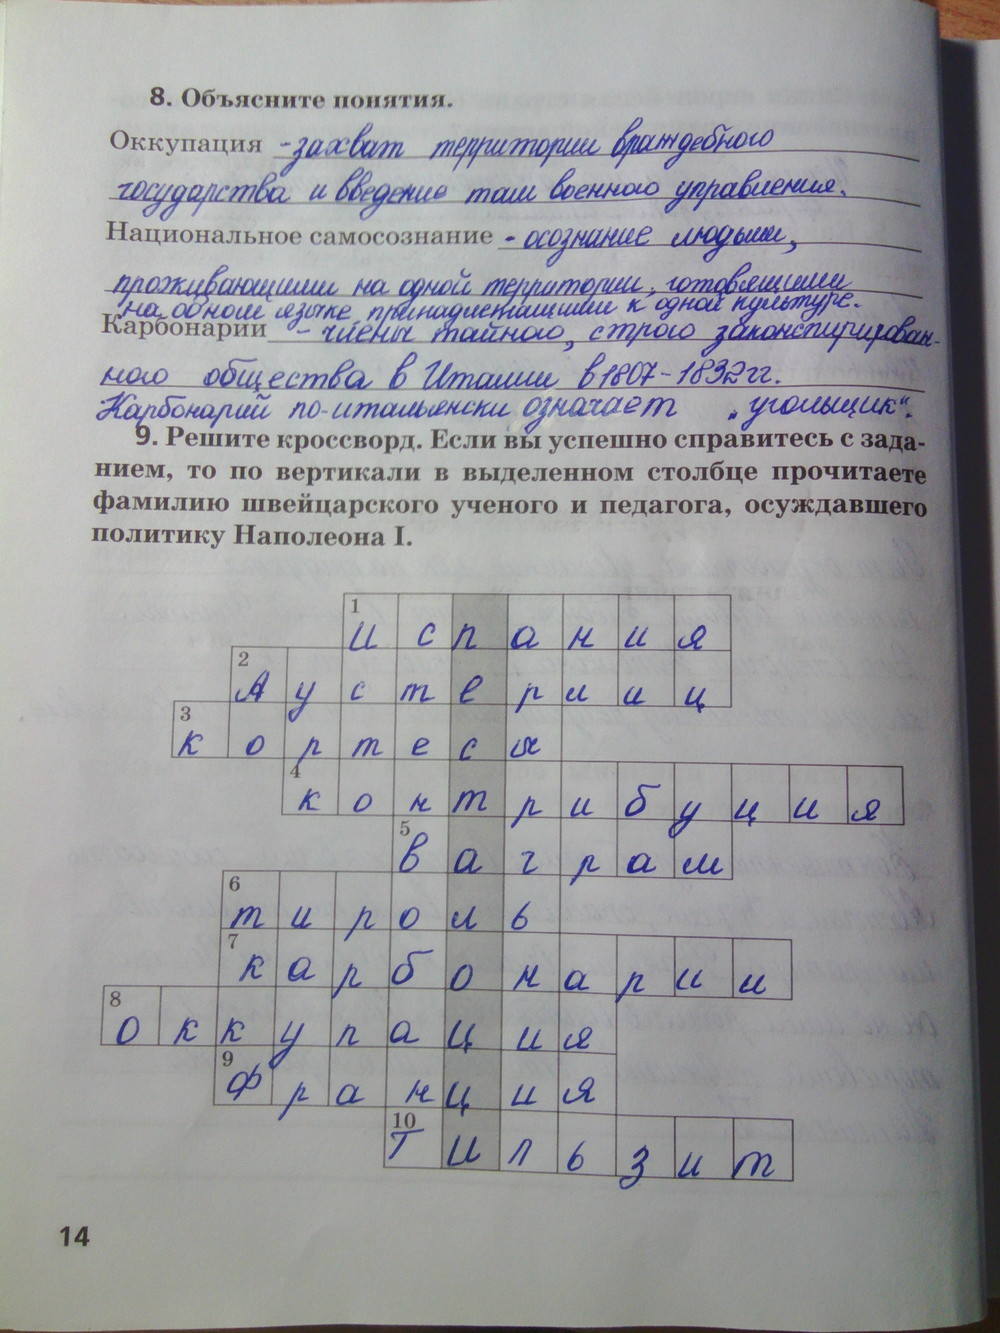 8. Объясните понятия.
Оккупация - захват территории враждебного
государства и введение там военного управления.
Национальное самосознание - осознание людьми,
проживающими на одной территории, готовящими
на одном языке, принадлежащими к одной культуре.
Карбонарии - члены тайного, строго законспирирован-
ного общества в Италии в 1807-1832 гг.
Карбонарий по-итальянски означает „угольщик“.
9. Решите кроссворд. Если вы успешно справитесь с зада-
нием, то по вертикали в выделенном столбце прочитаете
фамилию швейцарского ученого и педагога, осуждавшего
политику Наполеона I.
1 испания
2 Аустерлиц
3 кортесы
4 контрибуция
5 ваграм
6 тироль
7 карбонарии
8 оккупация
9 Франция
10 Тильзит
14